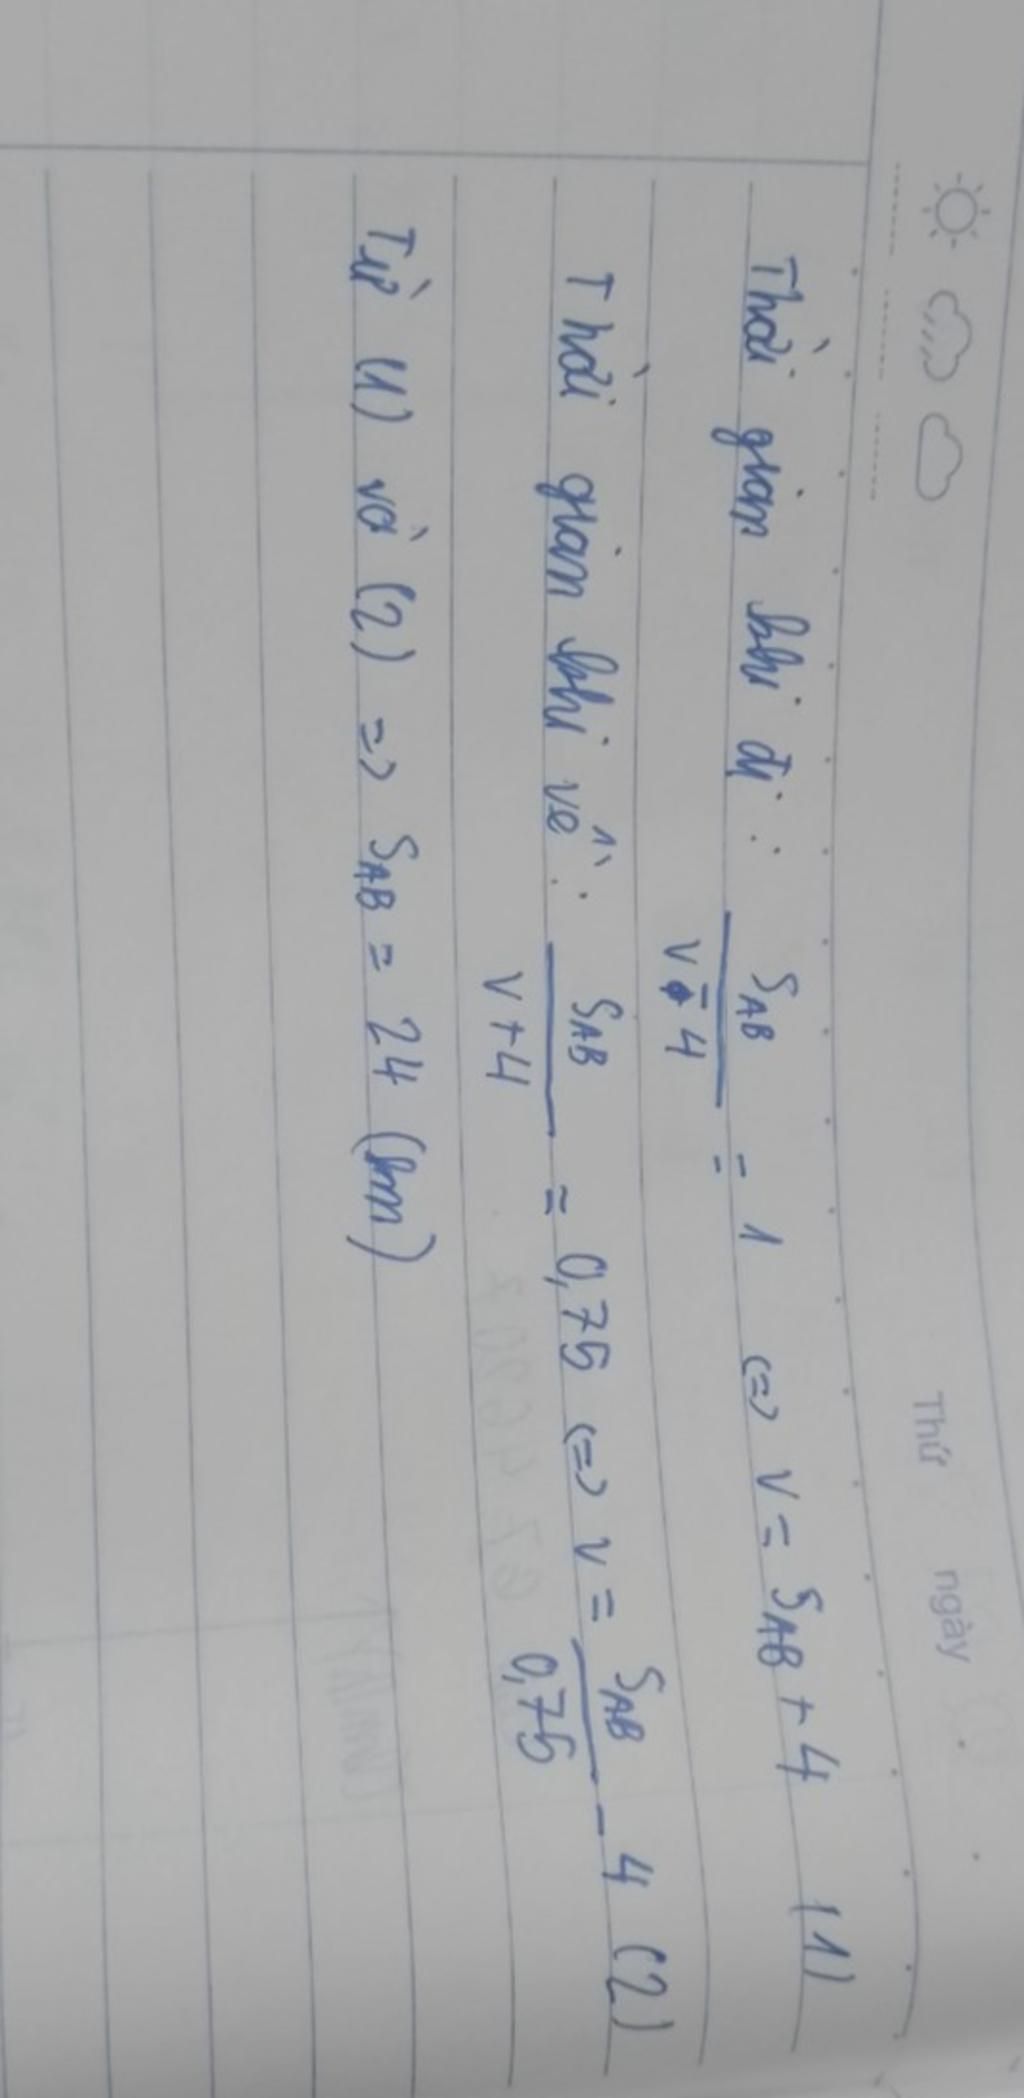 Thứ ngày
Thời gian khi đi : S_AB / (v - 4) = 1 <=> v = S_AB + 4 (1)
Thời gian khi về : S_AB / (v + 4) = 0,75 <=> v = S_AB / 0,75 - 4 (2)
Từ (1) và (2) => S_AB = 24 (km)